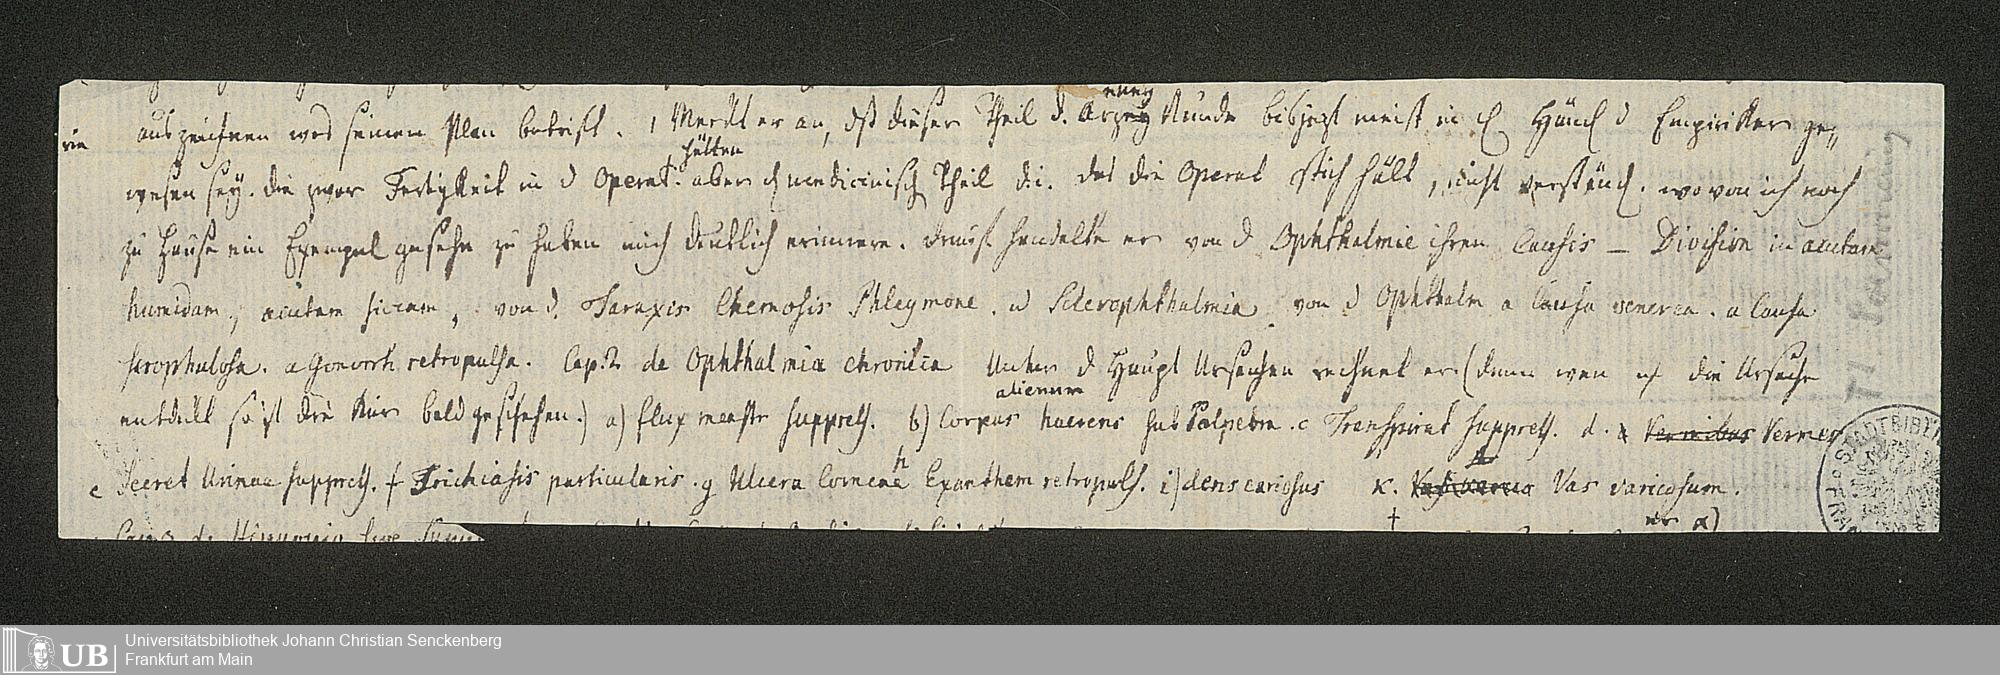 auszeichnen was seinen Plan betrift. 1 Merckt er an, dß dieser Theil d. Arzney Kunde bishjezt meist in Händ d Empirikker ge,,
wesen sey. die zwar Fertigkeit in d Operat. hätten aber medicinisch Theil d.i. das die Operat Stich hält, nicht verständ. wovon ich noch
zu Hause ein Exempel gesehn zu haben mich deutlich erinnere. drauf handelte er von d Ophthalmie ihren Causis – Division in acutam
humidam, acutam siccam, von d. Taraxis Chemosis Phlegmone. u Sclerophthalmia von d Ophthalm a Causa venerea. a Causa
scrophulosa. a Gonorrh retropulsa. Cap. 2 de Ophthalmia chronica Unter d Haupt Ursachen rechnet er (denn wen die Ursache
entdekt so ist die Kur bald geschehen.) a) flux menstr suppress. b) Corpus alienum haerens sub Palpebra. c Transpirat suppress. d. Vermibus Vermes
e Secret Urinae suppress. f Trichiasis particularis. g Ulcera Corneae h Exanthem retropuls. i) dens cariosus K. Vas varicosum.
Cap 3 de
α)
STADTBIBL
FRA
UB
Universitätsbibliothek Johann Christian Senckenberg
Frankfurt am Main